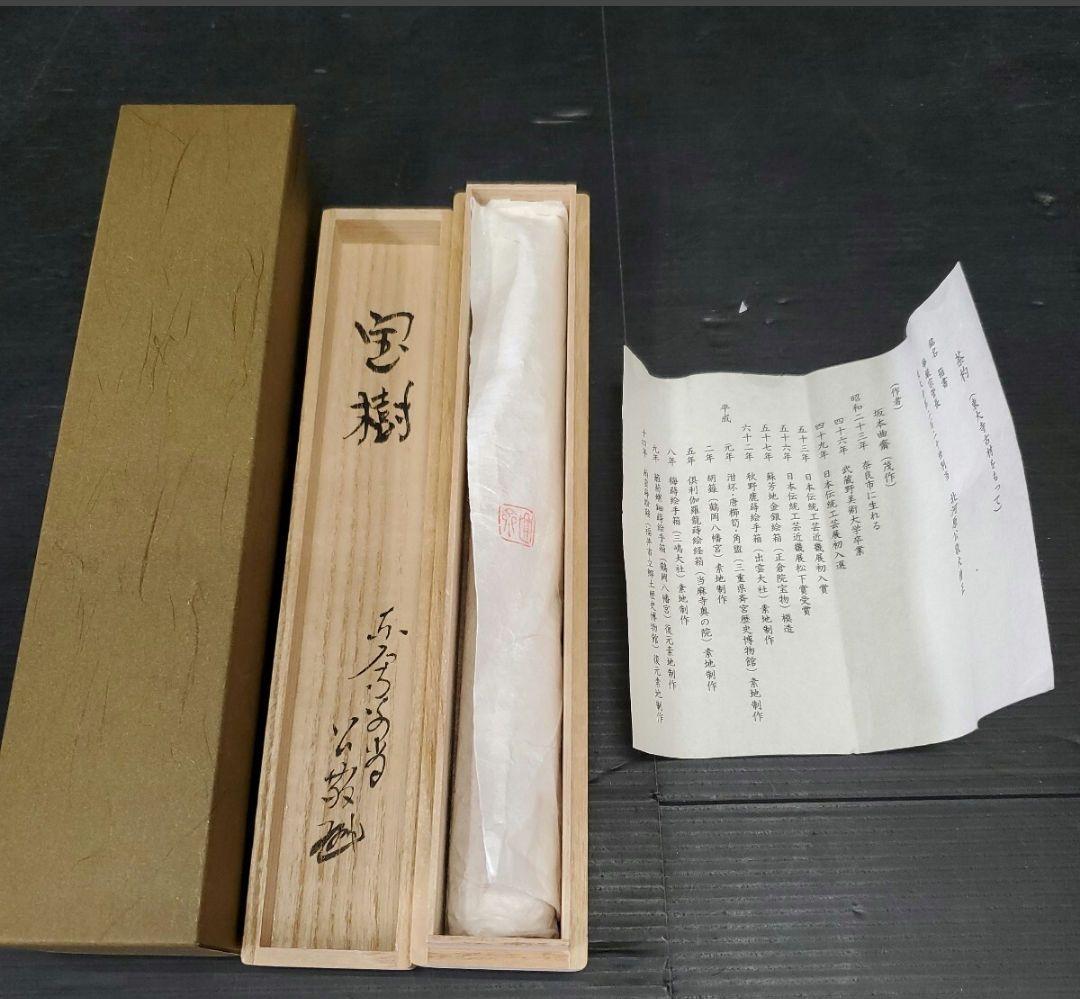 宝樹
公敬
茶杓（東大寺古材をもって）
銘名 箱書
（作者）
坂本曲齋（茂作）
昭和二十三年 奈良市に生れる
四十六年 武蔵野美術大学卒業
四十九年 日本伝統工芸展初入選
五十三年 日本伝統工芸近畿展初入賞
五十六年 日本伝統工芸近畿展松下賞受賞
五十七年 蘇芳地金銀絵箱（正倉院宝物）模造
六十二年 秋野鹿蒔絵手箱（出雲大社）素地制作
平成 元年 泔坏・唐櫛笥・角盥（三重県斎宮歴史博物館）素地制作
二年 胡籙（鶴岡八幡宮）素地制作
五年 倶利伽羅龍蒔絵経箱（当麻寺奥の院）素地制作
八年 梅蒔絵手箱（三嶋大社）素地制作
籬菊螺鈿蒔絵手箱（鶴岡八幡宮）復元素地制作
（福井市立郷土歴史博物館）復元素地制作